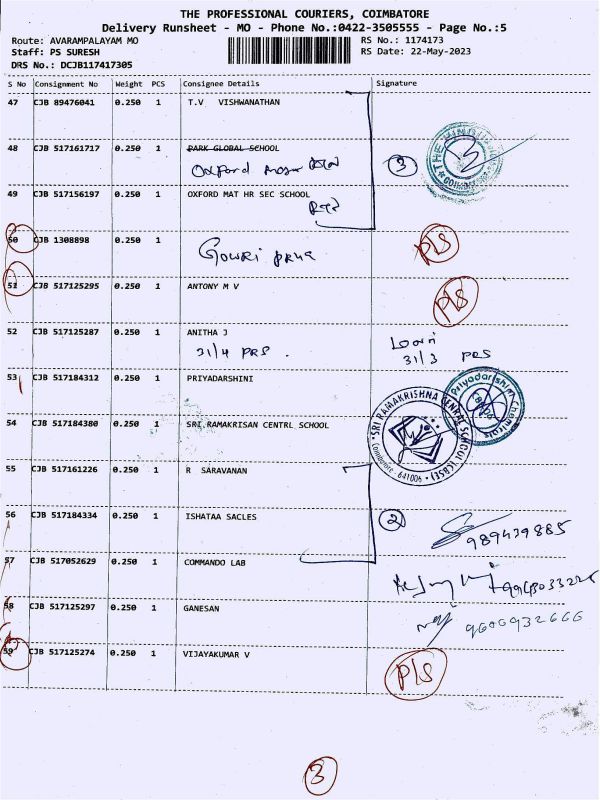 THE PROFESSIONAL COURIERS, COIMBATORE
Delivery Runsheet - MO - Phone No.:0422-3505555 - Page No.:5
Route: AVARAMPALAYAM MO RS No.: 1174173
Staff: PS SURESH RS Date: 22-May-2023
DRS No.: DCJB117417305
S No Consignment No Weight PCS Consignee Details Signature
47 CJB 89476041 0.250 1 T.V VISHWANATHAN
48 CJB 517161717 0.250 1 PARK GLOBAL SCHOOL
Oxford
3
THE HINDU
49 CJB 517156197 0.250 1 OXFORD MAT HR SEC SCHOOL
50 CJB 1308898 0.250 1 P/S
Gowri
51 CJB 517125295 0.250 1 ANTONY M V P/S
52 CJB 517125287 0.250 1 ANITHA J
31/4 PRS . 31/3 PRS
53 CJB 517184312 0.250 1 PRIYADARSHINI
Priyadarshini Chemicals
54 CJB 517184380 0.250 1 SRI.RAMAKRISAN CENTRL SCHOOL
SRI RAMAKRISHNA CENRAL SCHOOL (CBSE)
Coimbatore - 641006
55 CJB 517161226 0.250 1 R SARAVANAN
56 CJB 517184334 0.250 1 ISHATAA SACLES
2
989439885
57 CJB 517052629 0.250 1 COMMANDO LAB
58 CJB 517125297 0.250 1 GANESAN
9600932666
59 CJB 517125274 0.250 1 VIJAYAKUMAR V P/S
3